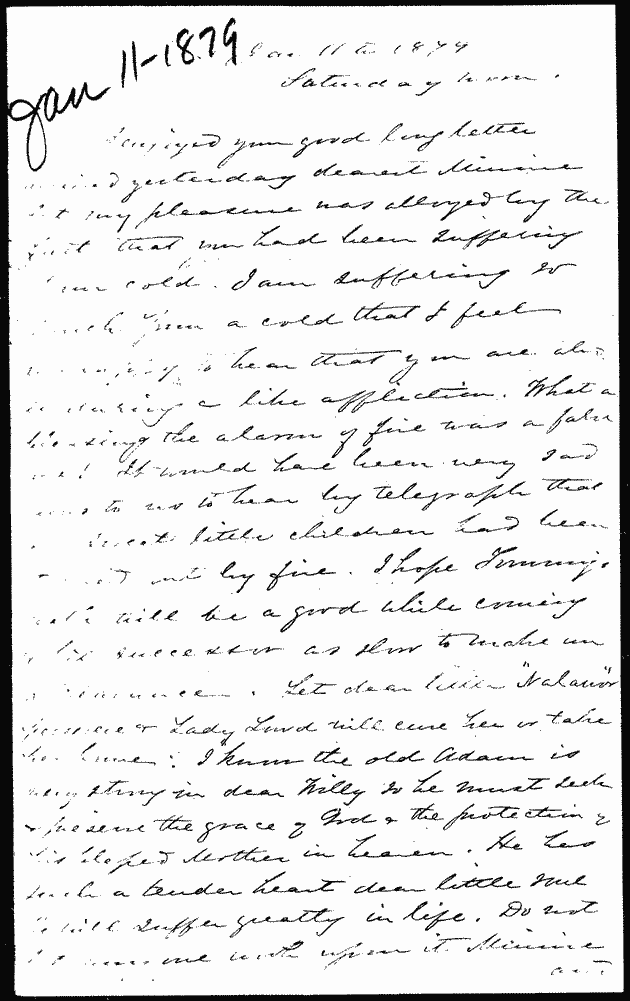 Jan 11-1879
Jan 11th 1879
Saturday noon.
I enjoyed your good long letter
yesterday dearest Minnie
but my pleasure was alloyed by the
fact that you had been suffering
from cold. I am suffering so
much from a cold that I feel
to hear that you are also
enduring a like affliction. What a
blessing the alarm of fire was a false
one! It would have been very sad
news to us to hear by telegraph that
sweet little children had been
out by fire. I hope Tommy's
will be a good while coming
& his successor as slow to make an
appearance. Let dear little
& Lady Lourd will cure her or take
her home. I know the old Adam is
very strong in dear Willy so he must seek
& preserve the grace of God & the protection of
his blessed Mother in heaven. He has
such a tender heart dear little soul
will suffer greatly in life. Do not
let anyone work upon it Minnie